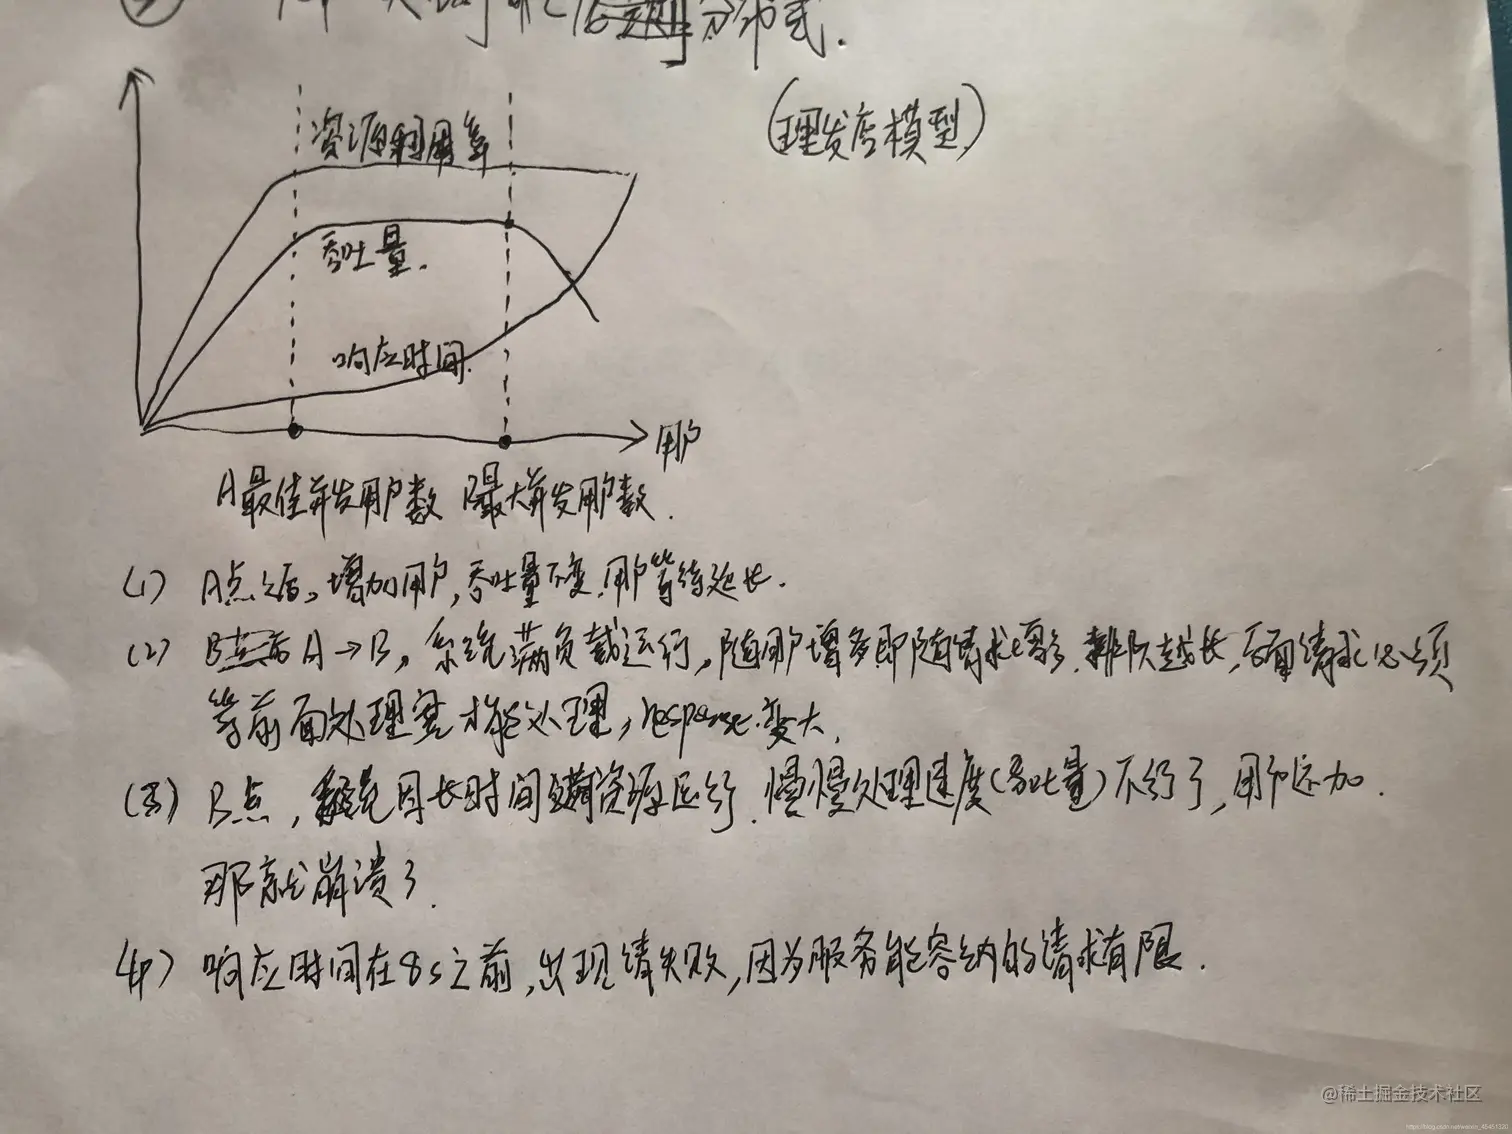 分布式.
(理发店模型)
资源利用率
吞吐量.
响应时间.
用户
A最佳并发用户数 B最大并发用户数.
(1) A点之后,增加用户,吞吐量不变.用户等待延长.
(2) A→B,系统满负载运行,随用户增多即随请求增多.排队越长,后面请求必须
等前面处理完才能处理,response.变大.
(3) B点,系统因长时间满资源运行.慢慢处理速度(吞吐量)不行了,用户还加.
那就崩溃了.
(4) 响应时间在8s之前,出现请失败,因为服务能容纳的请求有限.
@稀土掘金技术社区